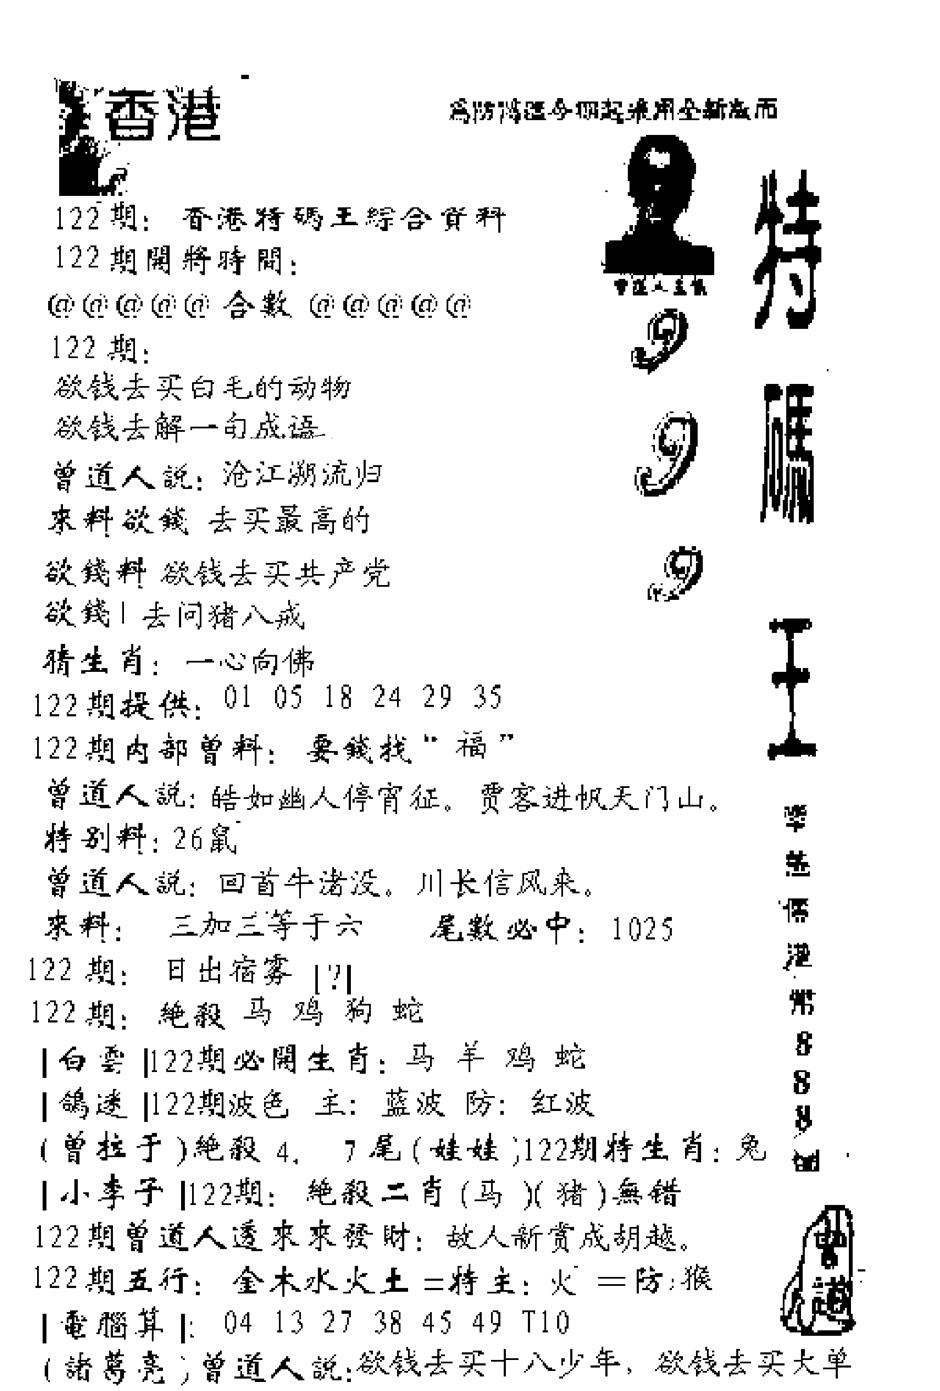 香港
為防濫今期起采用全新版而
122期：香港特碼王綜合資料
122期開將時間：
@@@@@合數@@@@@
122期：
欲钱去买白毛的动物
欲钱去解一句成语
曾道人説：沧江溯流归
來料欲錢 去买最高的
欲錢料 欲钱去买共产党
欲錢| 去问猪八戒
猜生肖：一心向佛
122期提供：01 05 18 24 29 35
122期内部曾料：要錢找“福”
曾道人説：皓如幽人停宵征。贾客进帆天门山。
特别料：26鼠
曾道人説：回首牛渚没。川长信风来。
來料： 三加三等于六 尾數必中：1025
122期：日出宿雾|?|
122期：絶殺 马 鸡 狗 蛇
|白雲|122期必開生肖：马 羊 鸡 蛇
|鴿迷|122期波色 主：蓝波 防：红波
(曾拉于)絶殺 4. 7尾(娃娃)122期特生肖：兔
|小李子|122期：絶殺二肖(马)(猪)無错
122期曾道人透來來發財：故人新赏成胡越。
122期五行：金木水火土=特主：火 =防：猴
|電腦算|：04 13 27 38 45 49 T10
(諸葛亮)曾道人説:欲钱去买十八少年，欲钱去买大单
特
碼
王
9
9
9
港
幣
8
8
8
曾道